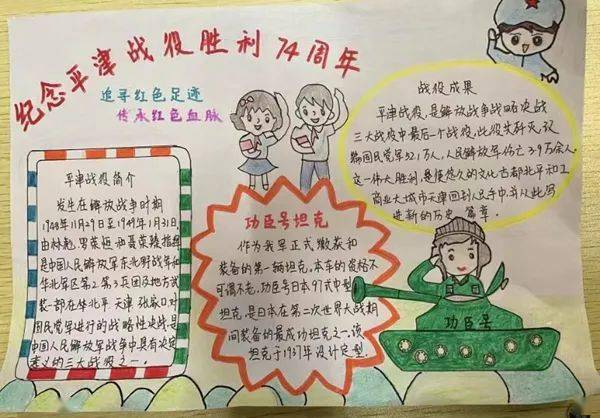 纪念平津战役胜利74周年
追寻红色足迹
传承红色血脉
平津战役简介
发生在解放战争时期
1948年11月29日至1949年1月31日,
由林彪、罗荣桓和聂荣臻指挥
是中国人民解放军东北野战军和
华北军区第2、第3兵团及地方武
装一部在华北平、天津、张家口对
国民党军进行的战略性决战,是
中国人民解放军战争中具有决定
意义的三大战役之一。
功臣号坦克
作为我军正式缴获和
装备的第一辆坦克,本车的资格不
可谓不老,功臣号日本97式中型
坦克,是日本在第二次世界大战期
间装备的最成功坦克之一,该
坦克于1937年设计定型.
战役成果
平津战役,是解放战争战略决战
三大战役中最后一个战役,此役共歼灭、改
编国民党军52.1万人,人民解放军伤亡3.9万余人.
这一伟大胜利,最使悠久的文化古都北平和工
商业大城市天津回到人民手中,并从此写
进新的历史 篇章.
功臣号